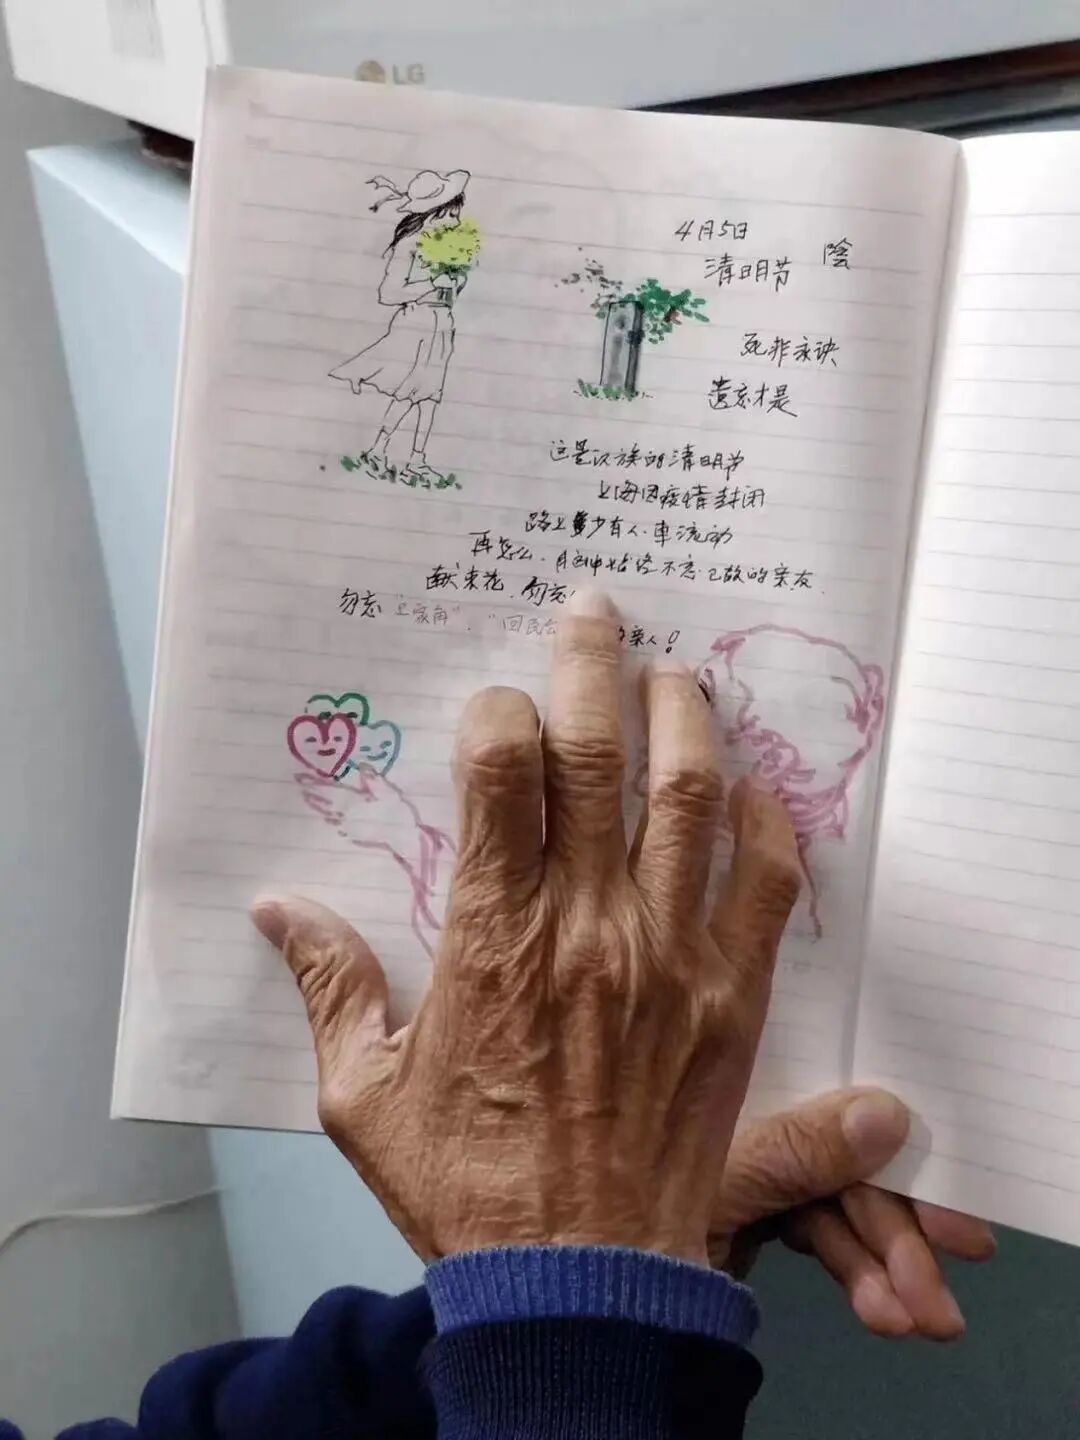 LG
4月5日
清明节 陰
死非永诀
遗忘才是
这是汉族的清明节
上海因疫情封闭
路上少有人.車流动
再怎么.脑中始终不忘已故的亲友.
献束花.勿忘
勿忘 "家角"."回民公 亲人!